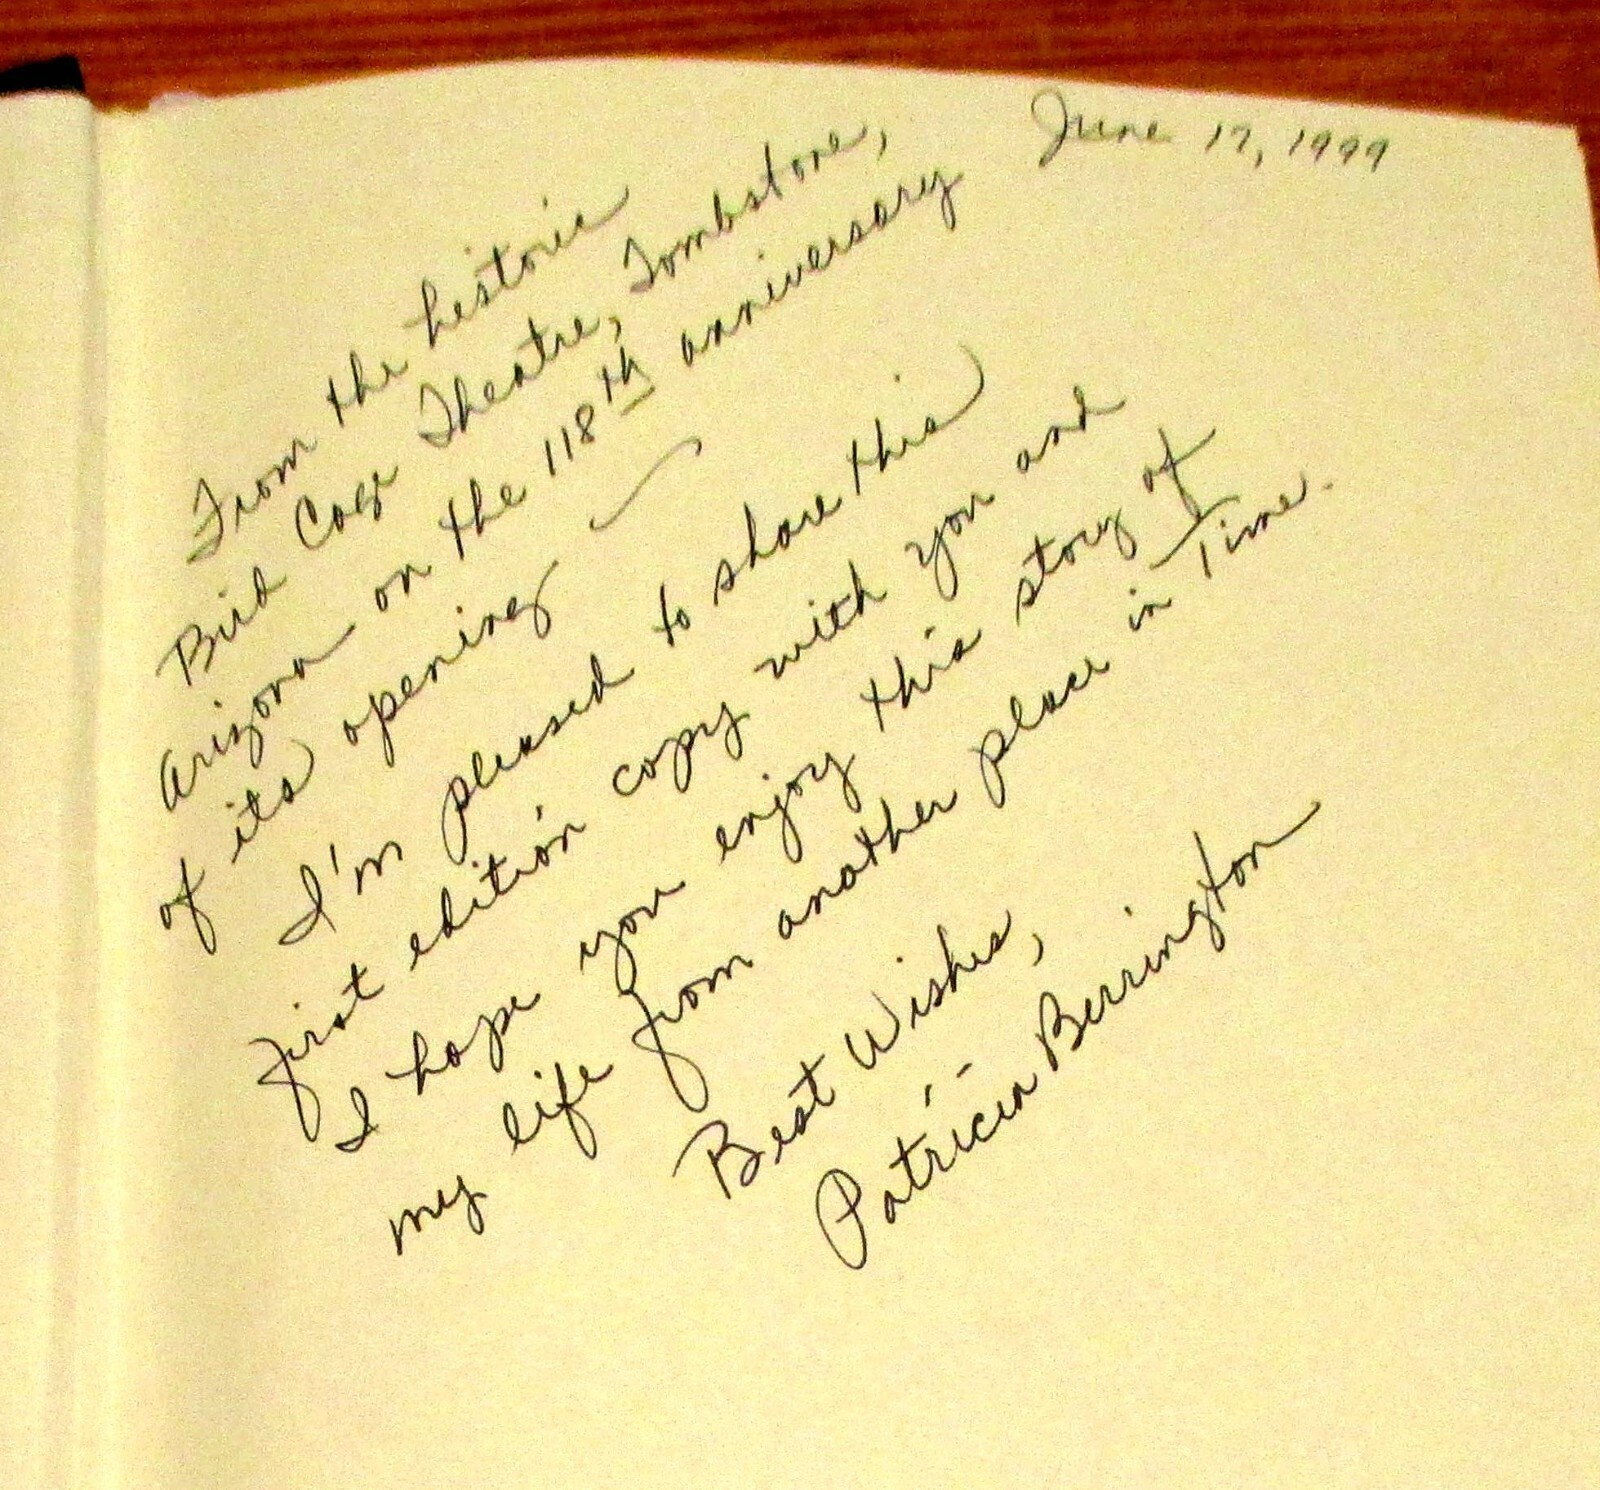 June 17, 1999
From the historic
Bird Cage Theatre, Tombstone,
Arizona on the 118th anniversary
of its opening
I'm pleased to share this
first edition copy with you and
I hope you enjoy this story of
my life from another place in Time.
Best Wishes,
Patricia Berrington